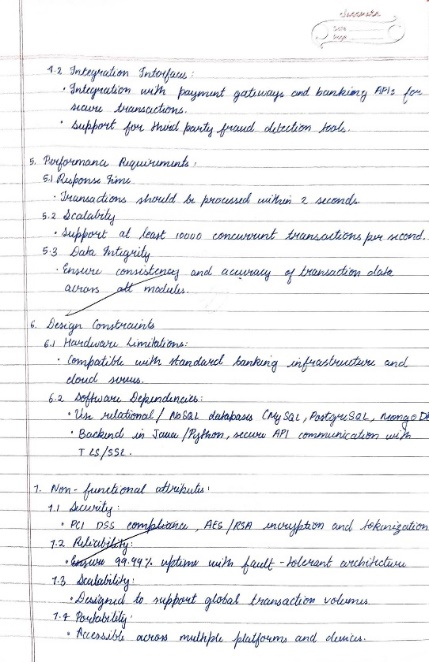 classmate
Date
Page
4.2 Integration Interfaces:
• Integration with payment gateways and banking APIs for
secure transactions.
• Support for third party fraud detection tools.
5. Performance Requirements:
5.1 Response Time
• Transactions should be processed within 2 seconds
5.2 Scalability
• Support at least 10000 concurrent transactions per second.
5.3 Data Integrity
• Ensure consistency and accuracy of transaction data
across all modules.
6. Design Constraints
6.1 Hardware Limitations:
• Compatible with standard banking infrastructure and
cloud
6.2 Software Dependencies:
• Use relational / NoSQL databases (MySQL, PostgreSQL, MongoDB
• Backend in Java / Python, secure API communication with
TLS/SSL.
7. Non-functional attributes:
7.1 Security:
• PCI DSS compliance, AES/RSA encryption and tokenization
7.2 Reliability:
• Ensure 99.99% uptime with fault-tolerant architecture
7.3 Scalability:
• Designed to support global transaction volumes
7.4 Portability:
• Accessible across multiple platforms and devices.